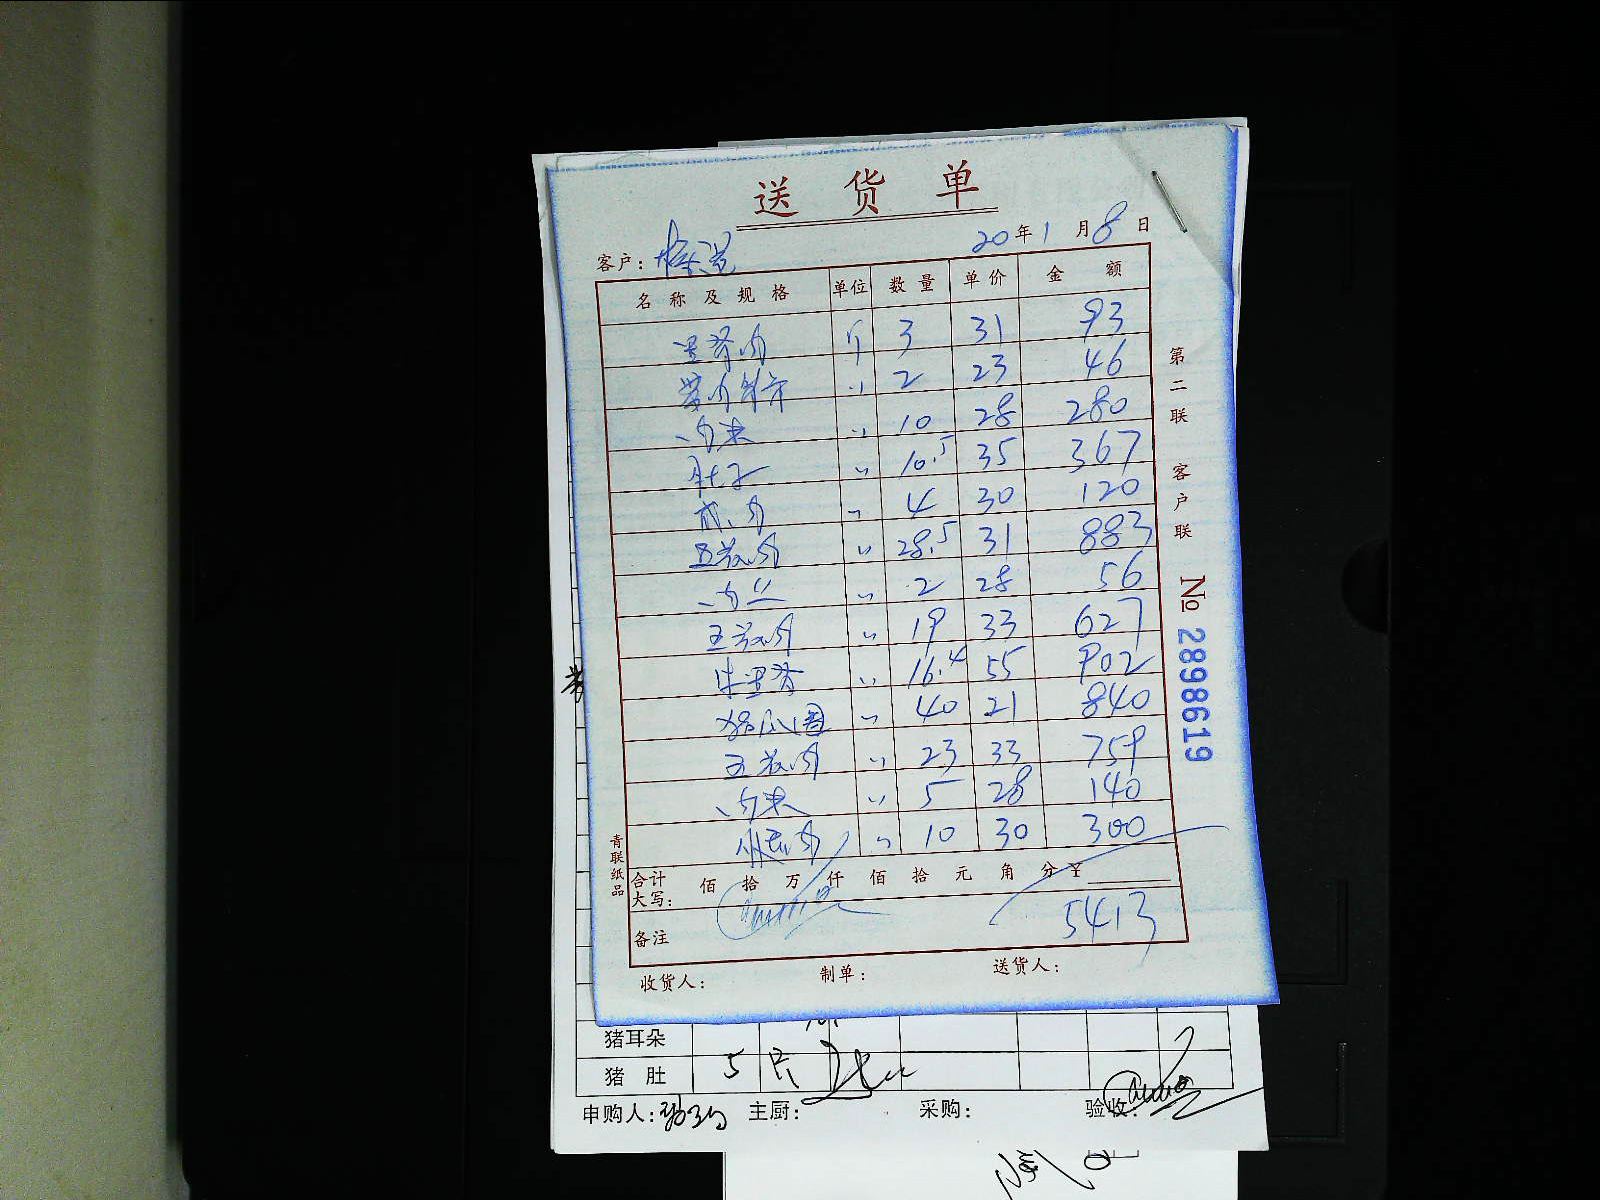 送货单
客户: 20年1月8日
名称及规格 单位 数量 单价 金额
里脊肉 斤 3 31 93
带肉 〃 2 23 46
肉末 〃 10 28 280
肚子 〃 10.5 35 367
肉 〃 4 30 120
五花肉 〃 28.5 31 883
肉丝 〃 2 28 56
五花肉 〃 19 33 627
牛里脊 〃 16.4 55 902
〃 40 21 840
五花肉 〃 23 33 759
肉末 〃 5 28 140
肉 〃 10 30 300
合计大写: 佰 拾 万 仟 佰 拾 元 角 分 ¥
备注 5413
收货人: 制单: 送货人:
第二联 客户联
№ 2898619
青联纸品
猪耳朵
猪肚 5 只
申购人: 主厨: 采购: 验收: